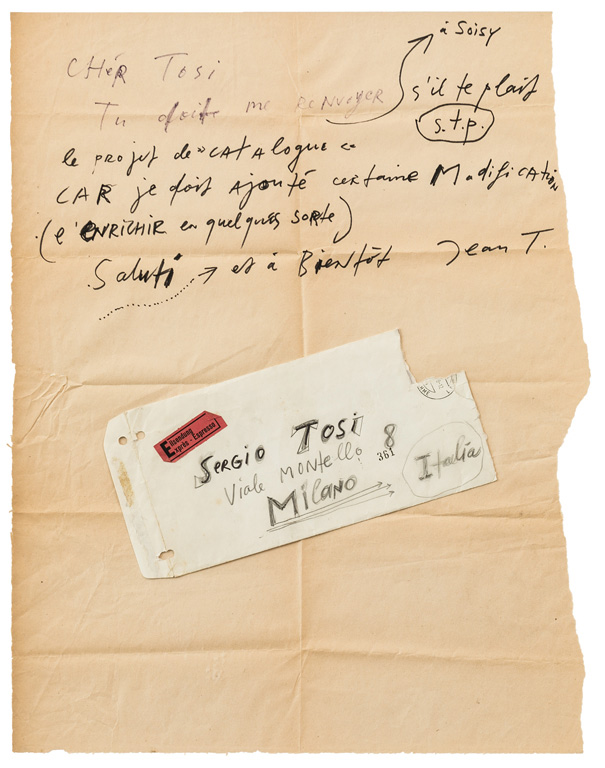 à Soisy
CHér Tosi
Tu doit me RENVOyER s'il te plait
s.t.p.
le PROjET de "CATAlOgUE"
CAR je doit AjOUTé certaine ModifiCATION
(l'ENRICHIR en quelques SORTe)
Saluti → et à BiENTôT Jean T.
Eilsendung
Exprès - Espresso
SERGIO TOSi
Viale MONTEllO 8
361
MilANO
Italia